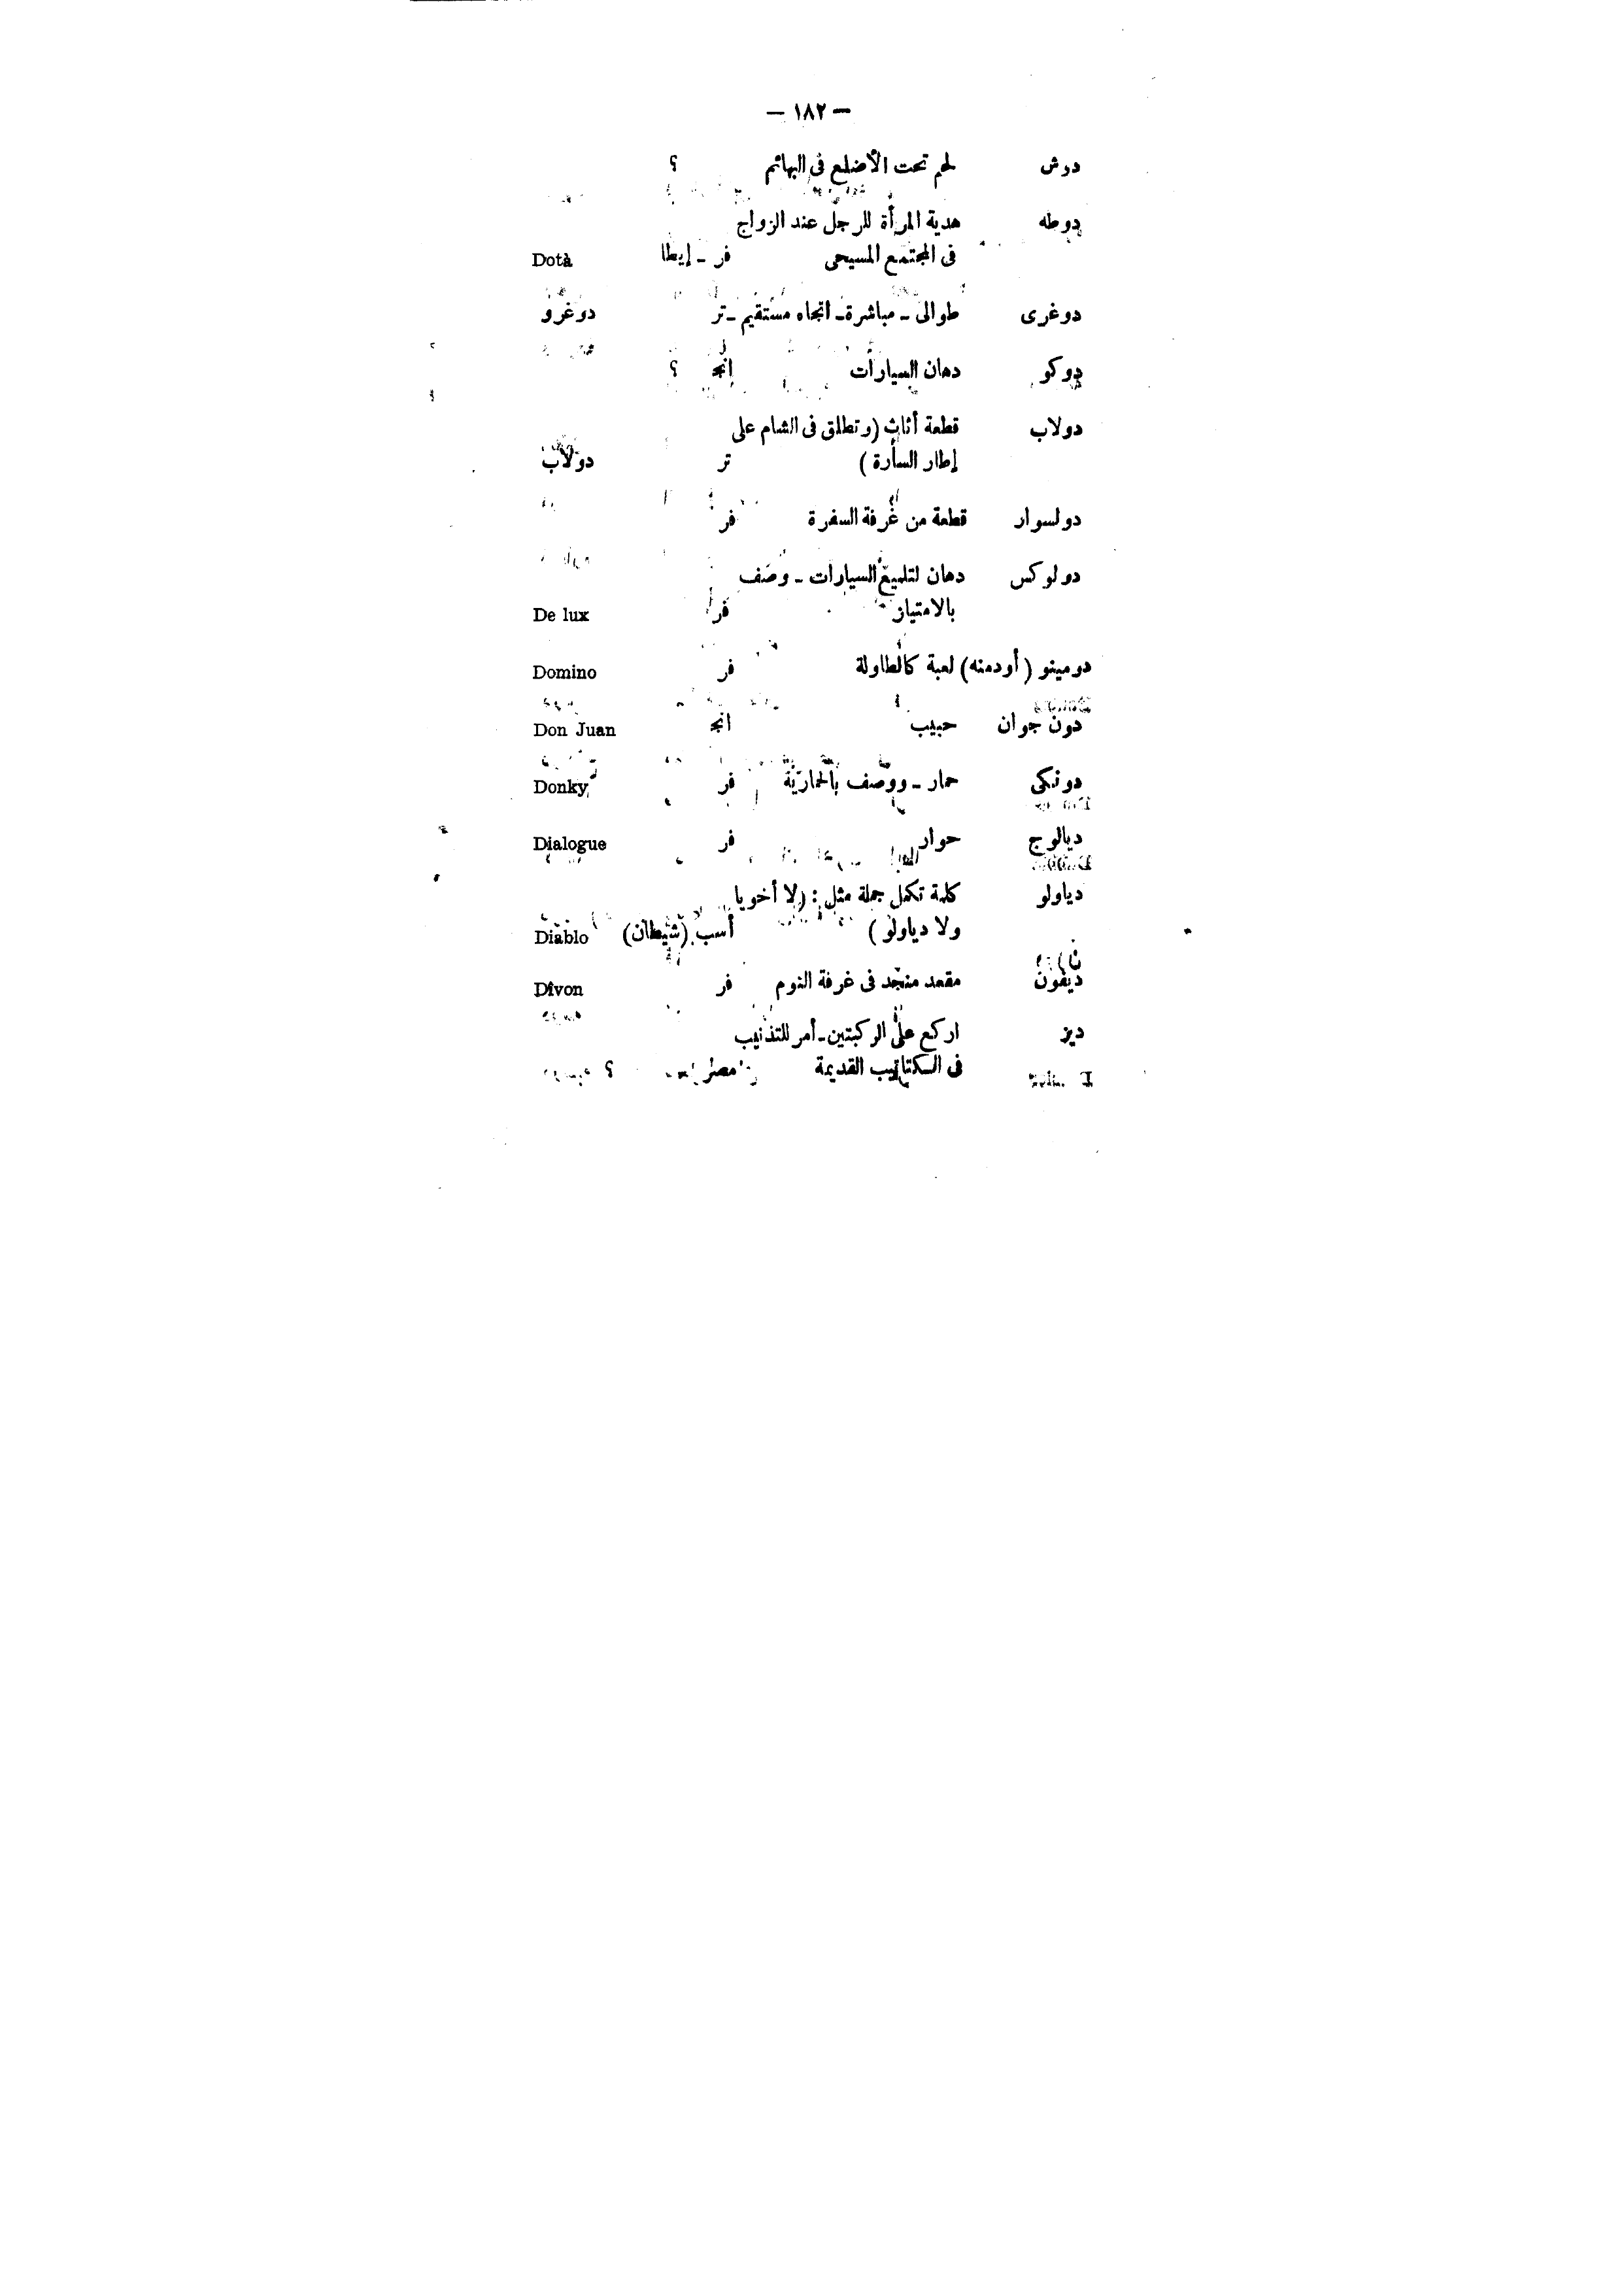 — ١٨٢ —
دوش لحم تحت الأضلع فى البهائم ؟
دوطه هدية المرأة للرجل عند الزواج
فى المجتمع المسيحى فر ـ إيطا Dotà
دوغرى طوالى ـ مباشرة ـ اتجاه مستقيم ـ تر دوغرو
دوكو دهان السيارات انجـ ؟
دولاب قطعة أثاث (وتطلق فى الشام على
إطار السارة ) تر دولاب
دولسوار قطعة من غرفة السفرة فر
دولوكس دهان لتلميع السيارات ـ وصف
بالامتياز فر De lux
دومينو (أودمنه) لعبة كالطاولة فر Domino
دون جوان حبيب انجـ Don Juan
دونكى حمار ـ ووصف بالحمارية فر Donky
ديالوج حوار فر Dialogue
دياولو كلمة تكمل جملة مثل : (لا أخويا
ولا دياولو ) أسب (شيطان) Diablo
ديفون مقعد منجد فى غرفة النوم فر Dîvon
ديز اركع على الركبتين ـ أمر للتذنيب
فى الكتاتيب القديمة مصر ؟